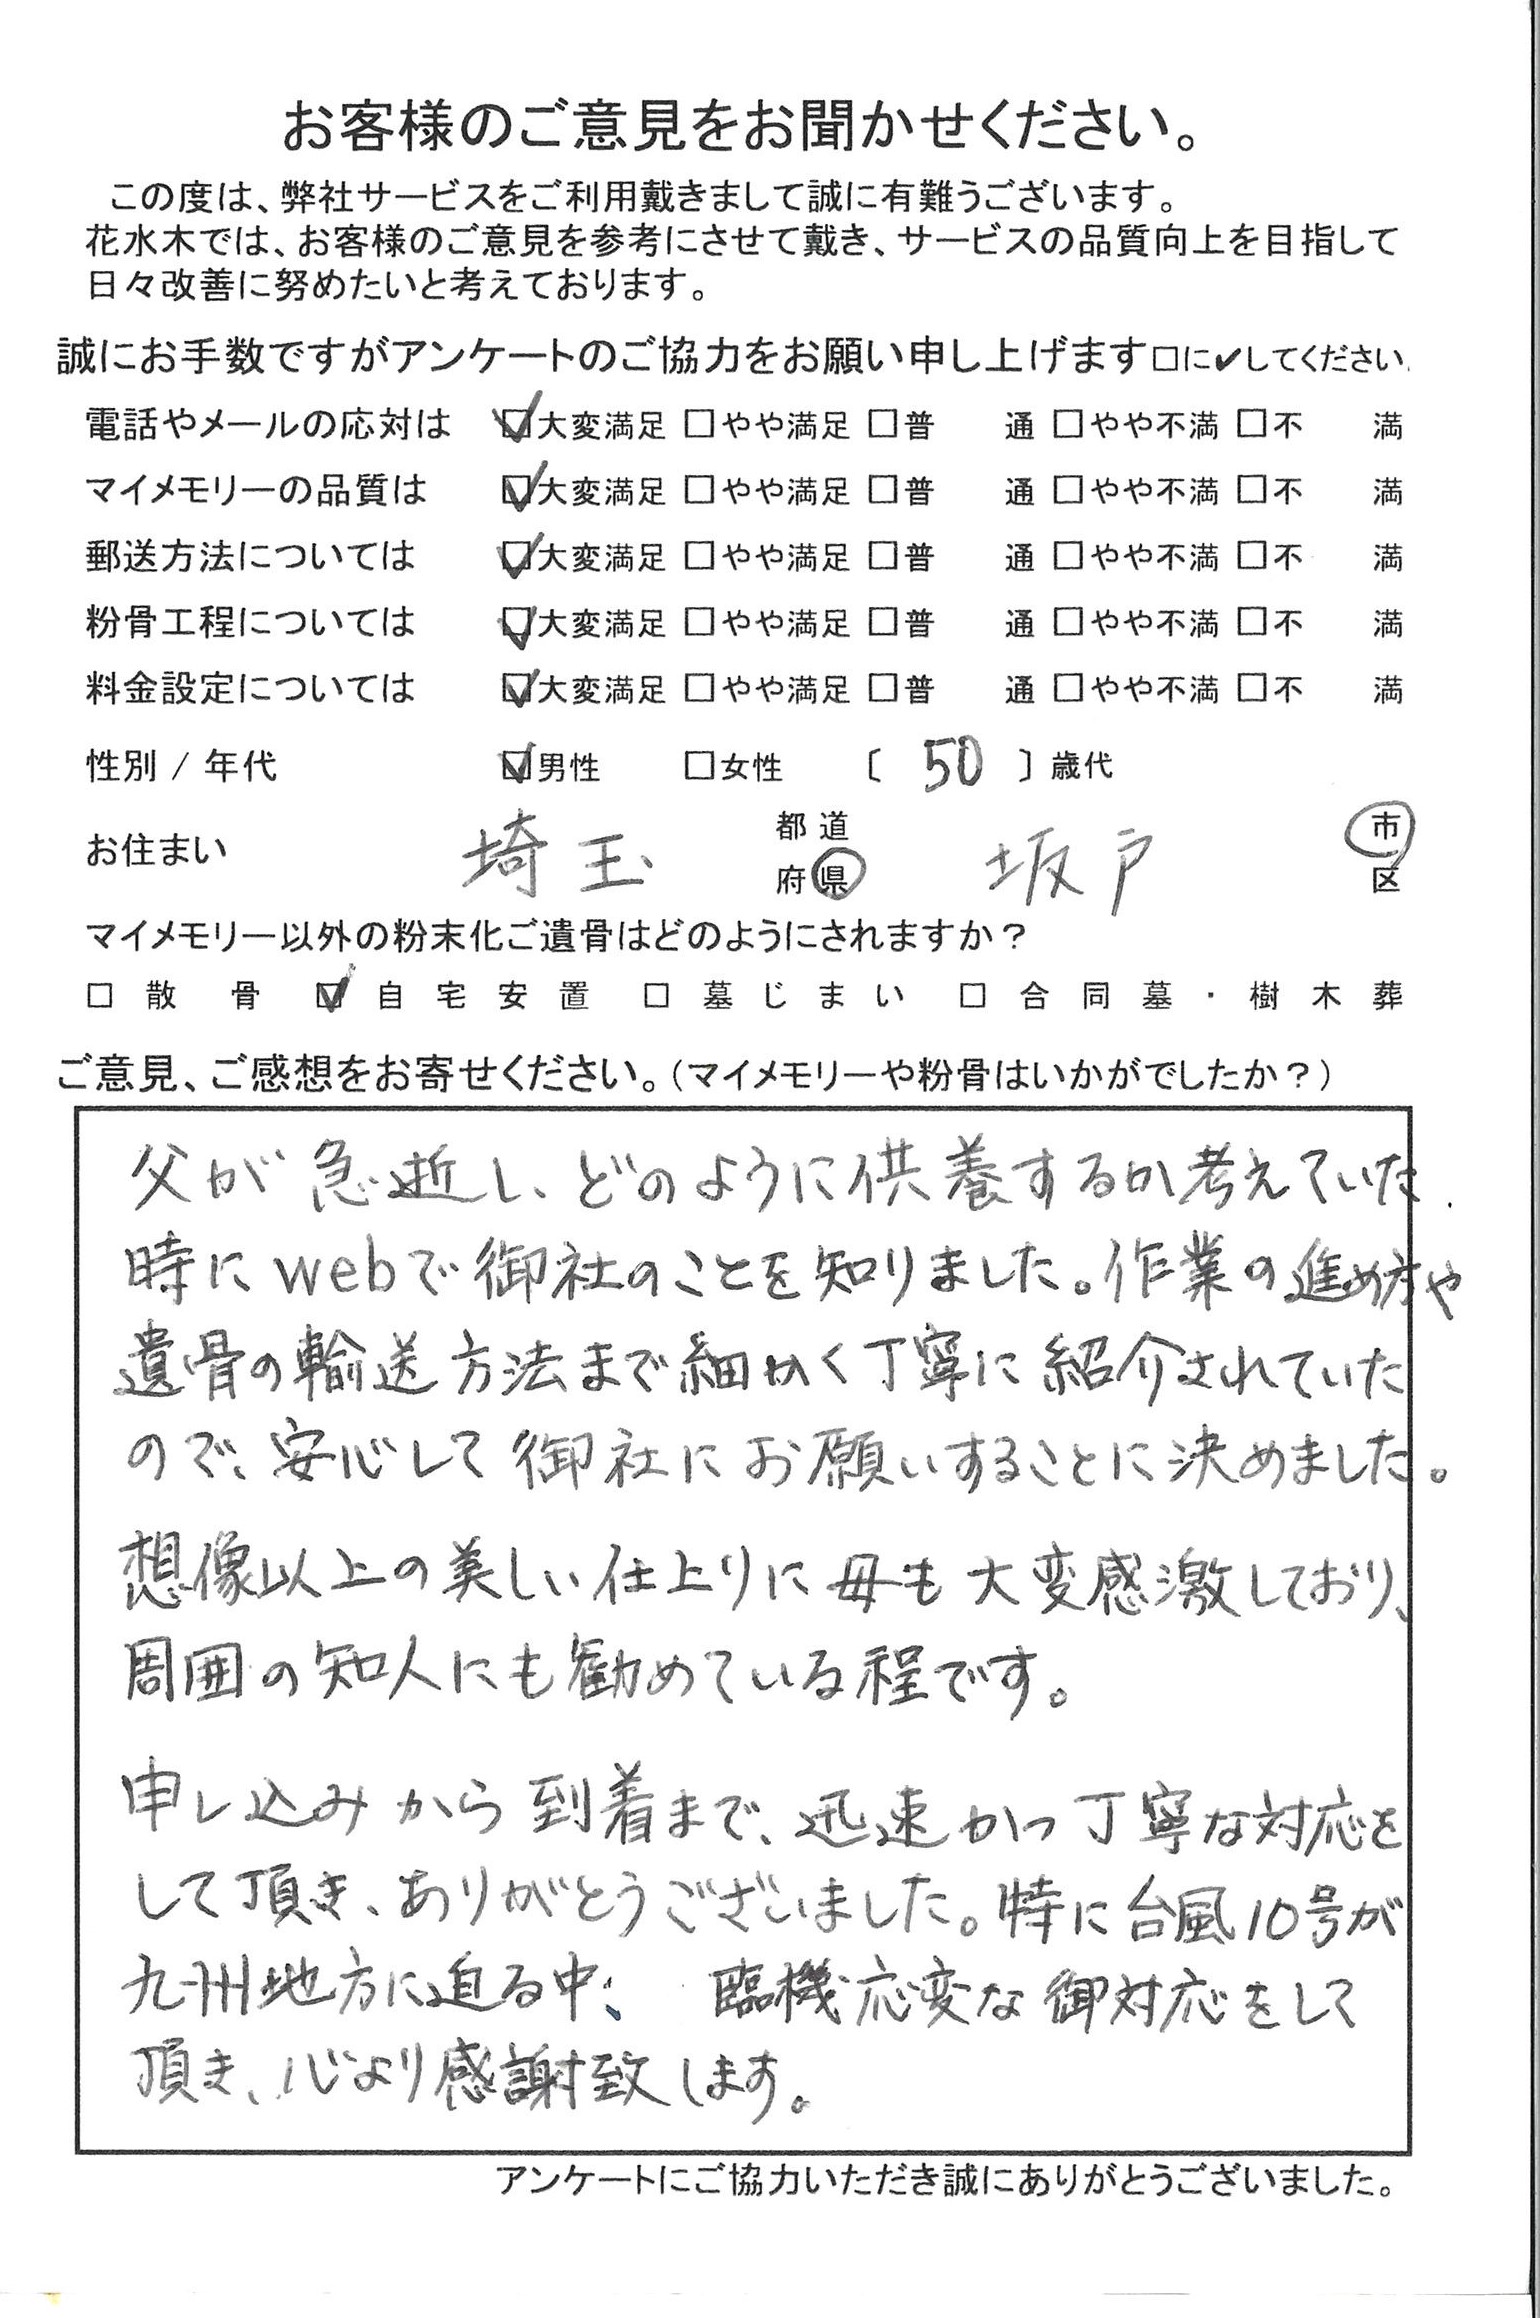 お客様のご意見をお聞かせください。
この度は、弊社サービスをご利用戴きまして誠に有難うございます。
花水木では、お客様のご意見を参考にさせて戴き、サービスの品質向上を目指して
日々改善に努めたいと考えております。
誠にお手数ですがアンケートのご協力をお願い申し上げます□に✔してください。
電話やメールの応対は ☑大変満足 □やや満足 □普 通 □やや不満 □不 満
マイメモリーの品質は ☑大変満足 □やや満足 □普 通 □やや不満 □不 満
郵送方法については ☑大変満足 □やや満足 □普 通 □やや不満 □不 満
粉骨工程については ☑大変満足 □やや満足 □普 通 □やや不満 □不 満
料金設定については ☑大変満足 □やや満足 □普 通 □やや不満 □不 満
性別 / 年代 ☑男性 □女性 〔 50 〕歳代
お住まい 埼玉 都道府県 坂戸 市区
マイメモリー以外の粉末化ご遺骨はどのようにされますか？
□ 散 骨 ☑ 自宅安置 □ 墓じまい □ 合同墓・樹木葬
ご意見、ご感想をお寄せください。（マイメモリーや粉骨はいかがでしたか？）
父が急逝し、どのように供養するか考えていた
時にwebで御社のことを知りました。作業の進め方や
遺骨の輸送方法まで細かく丁寧に紹介されていた
ので、安心して御社にお願いすることに決めました。
想像以上の美しい仕上りに母も大変感激しており、
周囲の知人にも勧めている程です。
申し込みから到着まで、迅速かつ丁寧な対応を
して頂き、ありがとうございました。特に台風10号が
九州地方に迫る中、臨機応変な御対応をして
頂き、心より感謝致します。
アンケートにご協力いただき誠にありがとうございました。